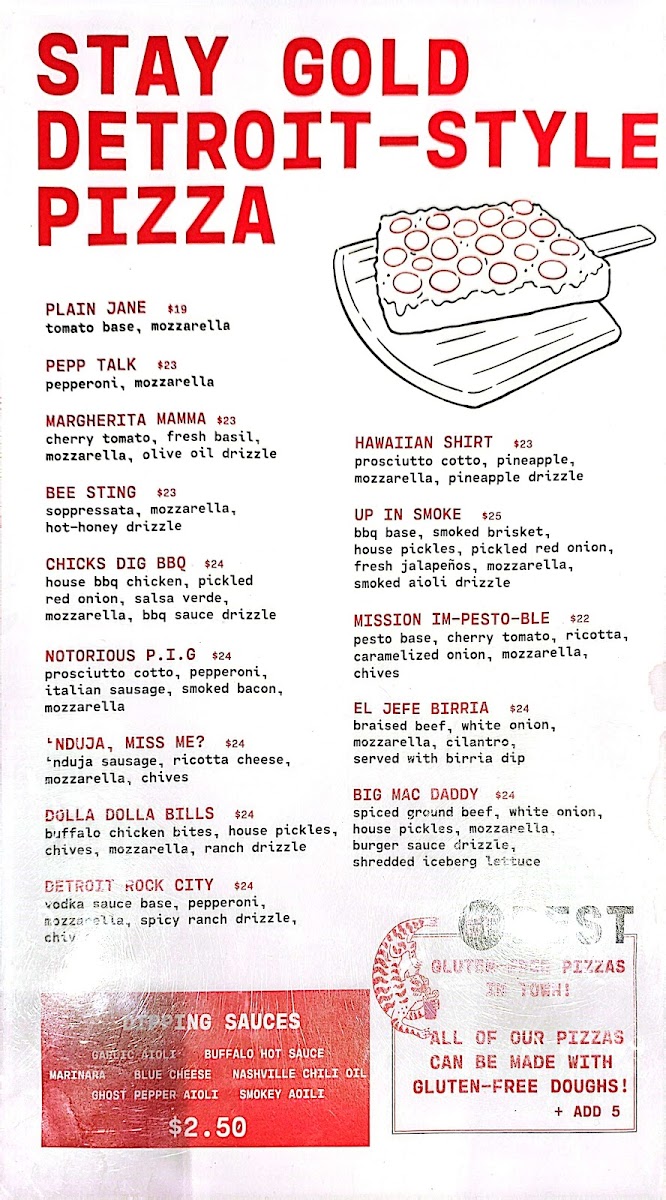 STAY GOLD
DETROIT-STYLE
PIZZA
PLAIN JANE $19
tomato base, mozzarella
PEPP TALK $23
pepperoni, mozzarella
MARGHERITA MAMMA $23
cherry tomato, fresh basil,
mozzarella, olive oil drizzle
BEE STING $23
soppressata, mozzarella,
hot-honey drizzle
CHICKS DIG BBQ $24
house bbq chicken, pickled
red onion, salsa verde,
mozzarella, bbq sauce drizzle
NOTORIOUS P.I.G $24
prosciutto cotto, pepperoni,
italian sausage, smoked bacon,
mozzarella
'NDUJA, MISS ME? $24
'nduja sausage, ricotta cheese,
mozzarella, chives
DOLLA DOLLA BILLS $24
buffalo chicken bites, house pickles,
chives, mozzarella, ranch drizzle
DETROIT ROCK CITY $24
vodka sauce base, pepperoni,
mozzarella, spicy ranch drizzle,
chiv
HAWAIIAN SHIRT $23
prosciutto cotto, pineapple,
mozzarella, pineapple drizzle
UP IN SMOKE $25
bbq base, smoked brisket,
house pickles, pickled red onion,
fresh jalapeños, mozzarella,
smoked aioli drizzle
MISSION IM-PESTO-BLE $22
pesto base, cherry tomato, ricotta,
caramelized onion, mozzarella,
chives
EL JEFE BIRRIA $24
braised beef, white onion,
mozzarella, cilantro,
served with birria dip
BIG MAC DADDY $24
spiced ground beef, white onion,
house pickles, mozzarella,
burger sauce drizzle,
shredded iceberg lettuce
DIPPING SAUCES
GARLIC AIOLI BUFFALO HOT SAUCE
MARINARA BLUE CHEESE NASHVILLE CHILI OIL
GHOST PEPPER AIOLI SMOKEY AOILI
$2.50
#1 BEST
GLUTEN-FREE PIZZAS
IN TOWN!
ALL OF OUR PIZZAS
CAN BE MADE WITH
GLUTEN-FREE DOUGHS!
+ ADD 5